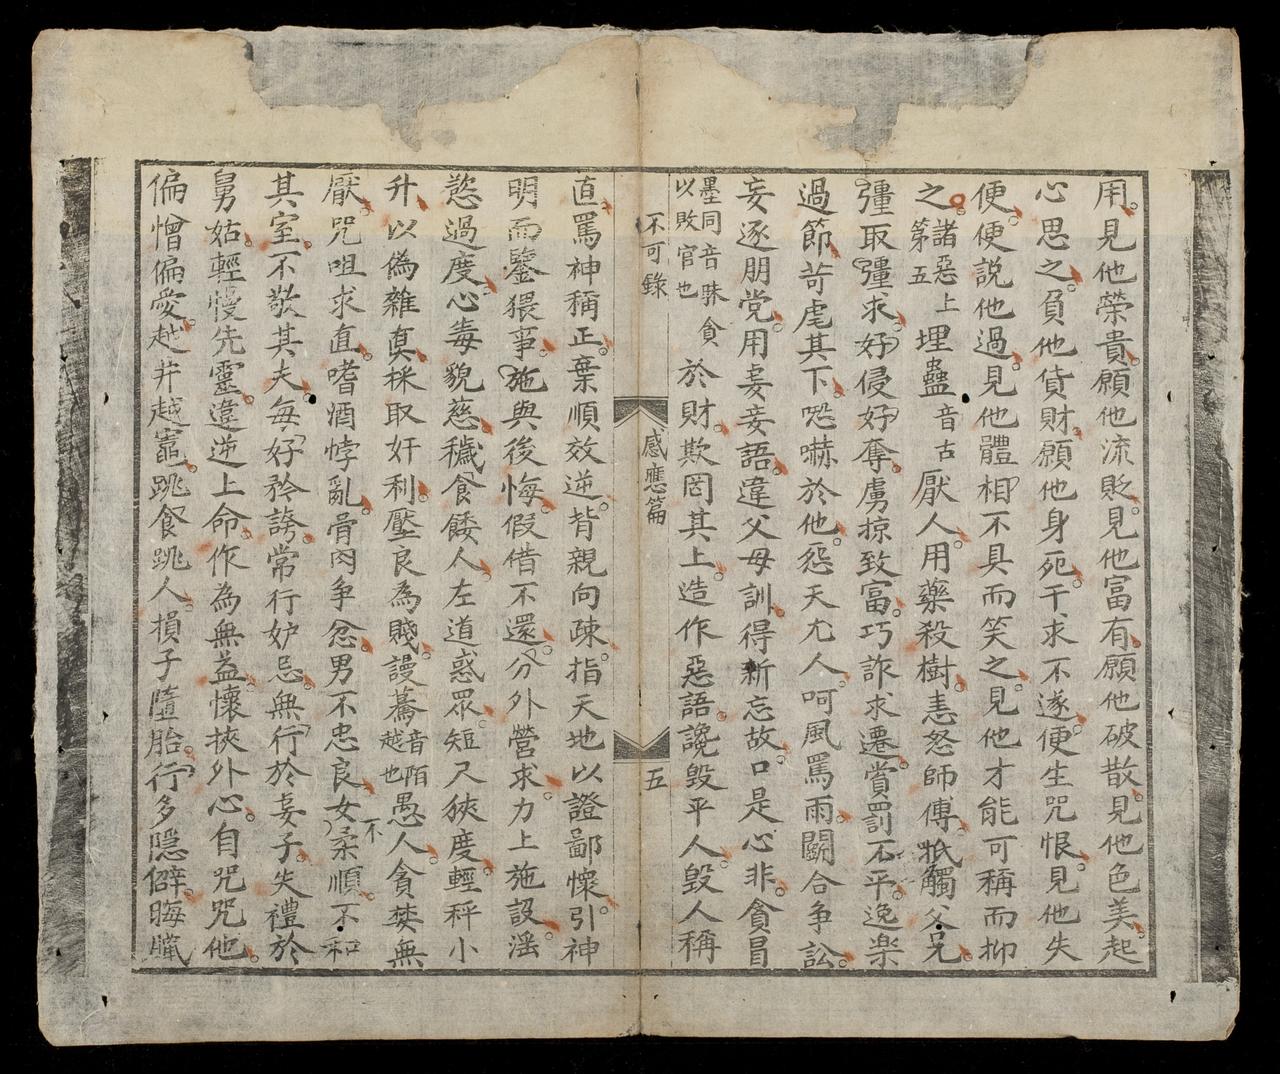 用。見他榮貴。願他流貶。見他富有。願他破散。見他色美。起
心思之。負他貨財。願他身死。干求不遂。便生咒恨。見他失
便。便說他過。見他體相不具而笑之。見他才能可稱而抑
之。諸惡上第五埋蠱音古厭人。用藥殺樹。恚怒師傅。抵觸父兄。
彊取彊求。好侵好奪。虜掠致富。巧詐求遷。賞罰不平。逸楽
過節。苛虐其下。恐嚇於他。怨天尤人。呵風罵雨。鬪合争訟。
妄逐朋党。用妻妾語。違父母訓。得新忘故。口是心非。貪冒
墨同音昧貪以敗官也於財。欺罔其上。造作惡語。讒毀平人。毀人稱
不可錄
感應篇
五
直。罵神稱正。棄順效逆。背親向疎。指天地以證鄙懷。引神
明而鑒猥事。施與後悔。假借不還。分外營求。力上施設。滛
慾過度。心毒貌慈。穢食餧人。左道惑眾。短尺狹度。輕秤小
升。以偽雜真。採取奸利。壓良為賤。謾驀音陌越也愚人。貪婪無
厭。咒咀求直。嗜酒悖亂。骨肉争忿。男不忠良。女不柔順。不和
其室。不敬其夫。每好矜誇。常行妒忌。無行於妻子。失禮於
舅姑。輕慢先靈。違逆上命。作為無益。懷挾外心。自咒咒他。
偏憎偏愛。越井越竈。跳食跳人。損子墮胎。行多隱僻。晦臘